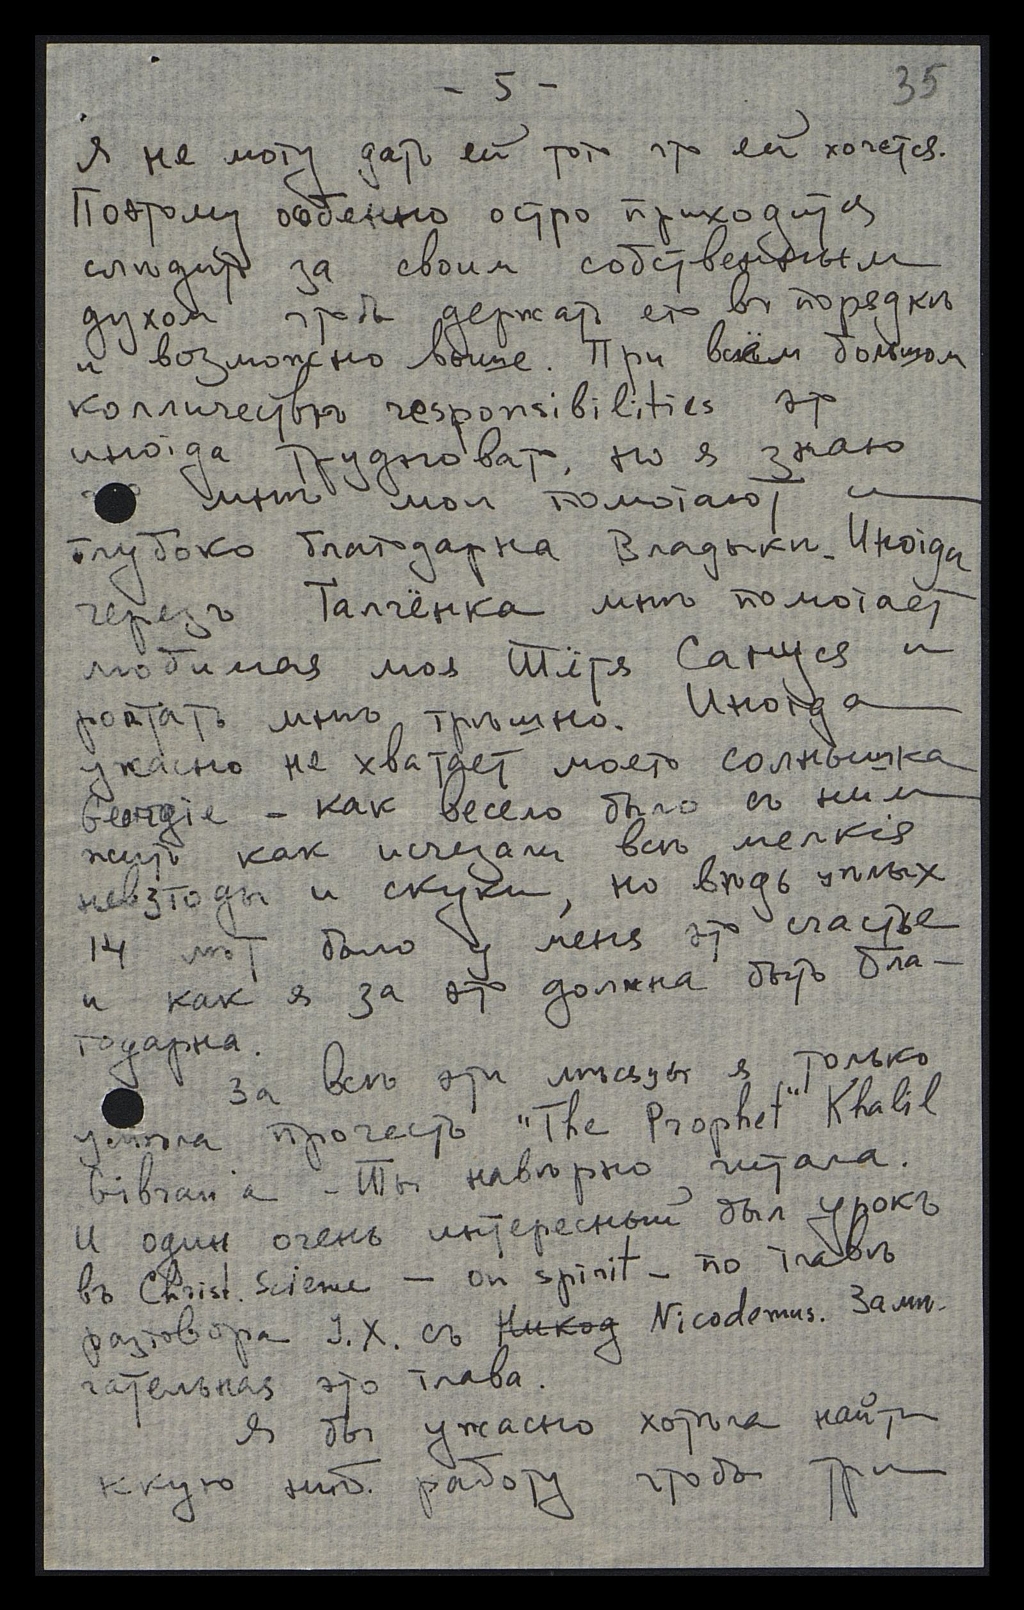 - 5 -
35
Я не могу дать ей того что ей хочется.
Поэтому особенно остро приходится
слѣдить за своим собственным
духом чтобы держать его въ порядкѣ
и возможно выше. При всём большом
колличествѣ responsibilities это
иногда трудновато, но я знаю
что мнѣ мои помогают и
глубоко благодарна Владыки. Иногда
через Галчёнка мнѣ помогает
любимая моя Тётя Сануся и
роптать мнѣ грѣшно. Иногда
ужасно не хватает моего солнышка
Georgie - как весело было съ ним
жить как исчезали всѣ мелкія
невзгоды и скуки, но вѣдь цѣлых
14 лѣт было у меня это счастье
и как я за это должна быть бла-
годарна.
За всѣ эти мѣсяцы я только
успѣла прочесть "The Prophet" Khalil
Gibran'а - Ты навѣрно читала.
И один очень интересный был урокъ
въ Christ. Science - on spirit - по главѣ
разговора I.Х. съ Никод Nicodemus. Замѣ-
чательная это глава.
Я бы ужасно хотѣла найти
ккую ниб. работу чтобы три